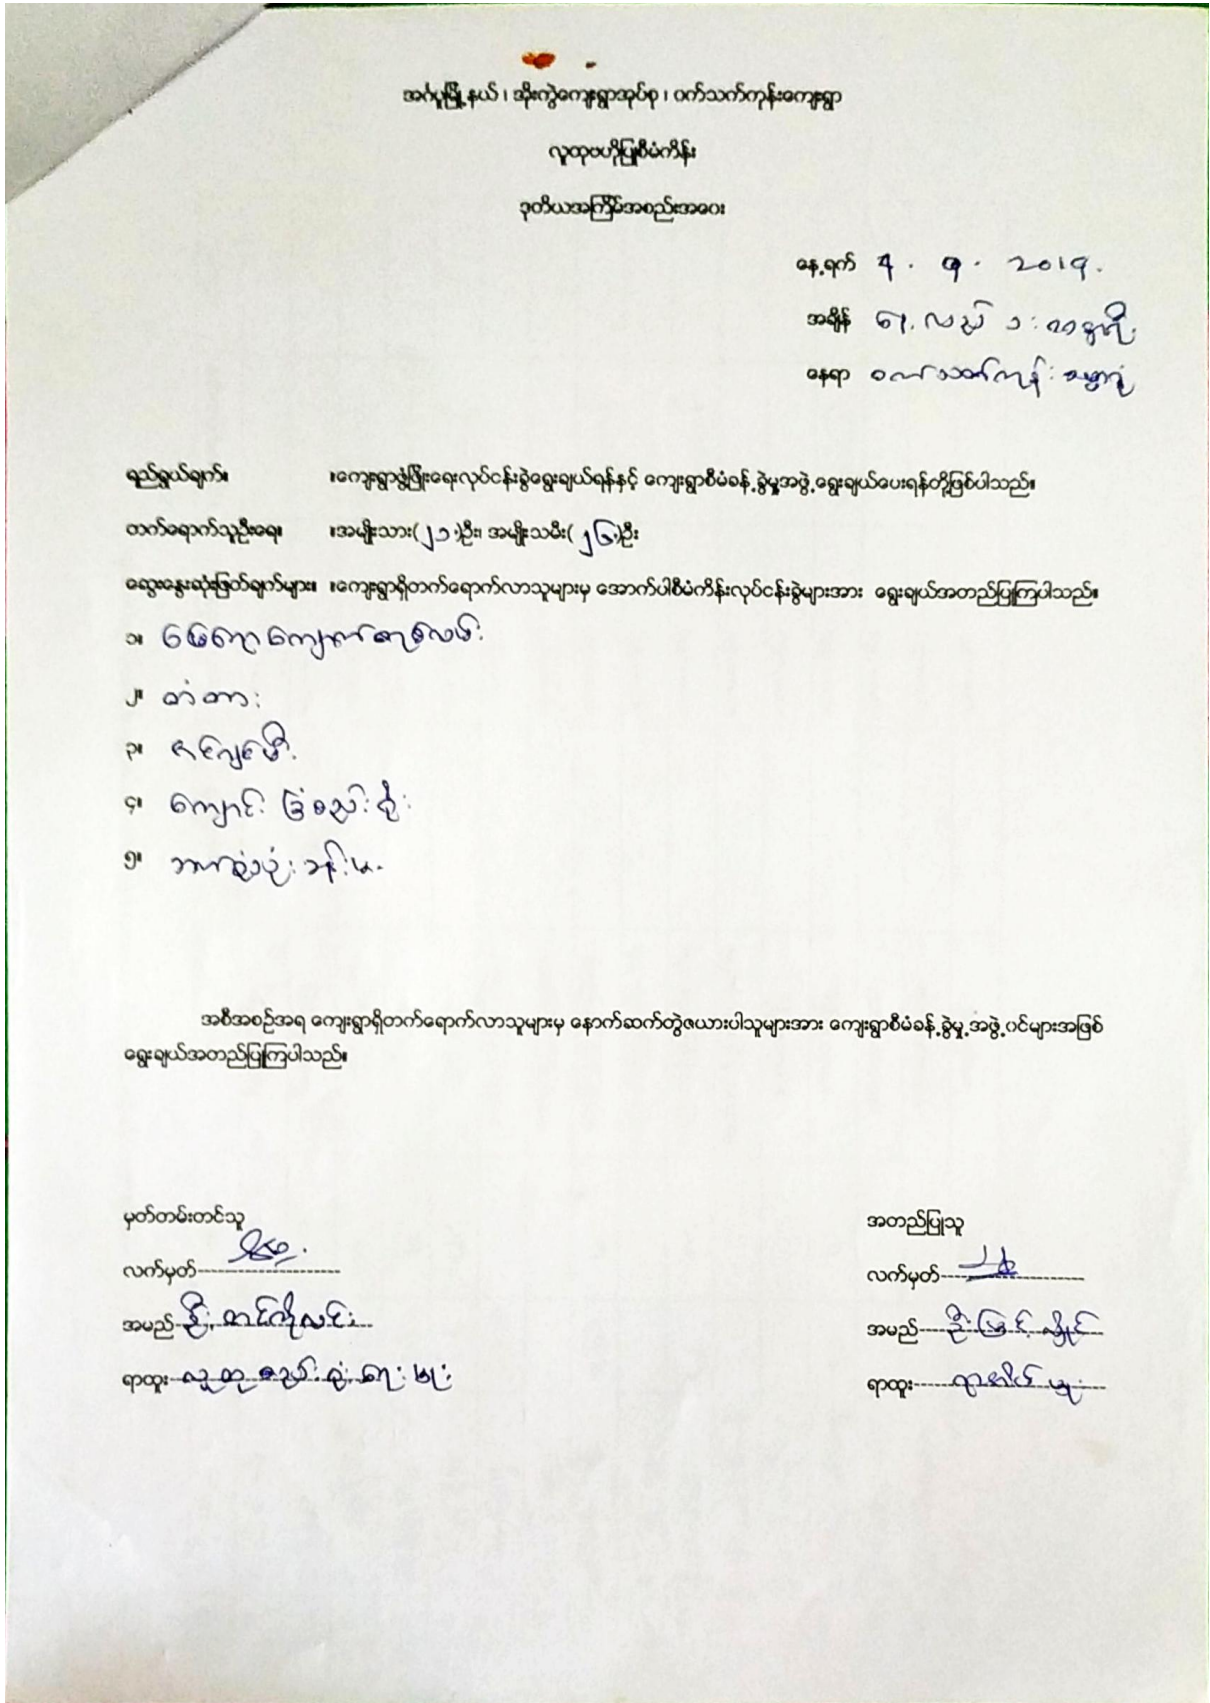 အင်္ဂပူမြို့နယ်၊ အိုးကွဲကျေးရွာအုပ်စု၊ ဝက်သက်ကုန်းကျေးရွာ
လူထုဗဟိုပြုစီမံကိန်း
ဒုတိယအကြိမ်အစည်းအဝေး
နေ့ရက် 2019.
အချိန် နေ့လည် ၁ : နာရီ
နေရာ ဝက်သက်ကုန်း ဓမ္မာရုံ
ရည်ရွယ်ချက်။ ။ကျေးရွာဖွံ့ဖြိုးရေးလုပ်ငန်းခွဲရွေးချယ်ရန်နှင့် ကျေးရွာစီမံခန့်ခွဲမှုအဖွဲ့ရွေးချယ်ပေးရန်တို့ဖြစ်ပါသည်။
တက်ရောက်သူဦးရေ။ ။အမျိုးသား(၂၁)ဦး၊ အမျိုးသမီး(၂၆)ဦး
ဆွေးနွေးဆုံးဖြတ်ချက်များ။ ။ကျေးရွာရှိတက်ရောက်လာသူများမှ အောက်ပါစီမံကိန်းလုပ်ငန်းခွဲများအား ရွေးချယ်အတည်ပြုကြပါသည်။
၁။ မြေသားကျောက်ချောလမ်း
၂။ တံတား
၃။ စင်္ကြံ
၄။ ကျောင်းခြံစည်းရိုး
၅။ ဘက်စုံသုံးခန်းမ
အစီအစဉ်အရ ကျေးရွာရှိတက်ရောက်လာသူများမှ နောက်ဆက်တွဲဇယားပါသူများအား ကျေးရွာစီမံခန့်ခွဲမှု့အဖွဲ့ဝင်များအဖြစ်
ရွေးချယ်အတည်ပြုကြပါသည်။
မှတ်တမ်းတင်သူ
လက်မှတ်
အမည် ဦးတင်ကိုလင်း
ရာထူး လူထုစည်းရုံးရေးမှူး
အတည်ပြုသူ
လက်မှတ်
အမည် ဦးမြင့်လှိုင်
ရာထူး ရာအိမ်မှူး